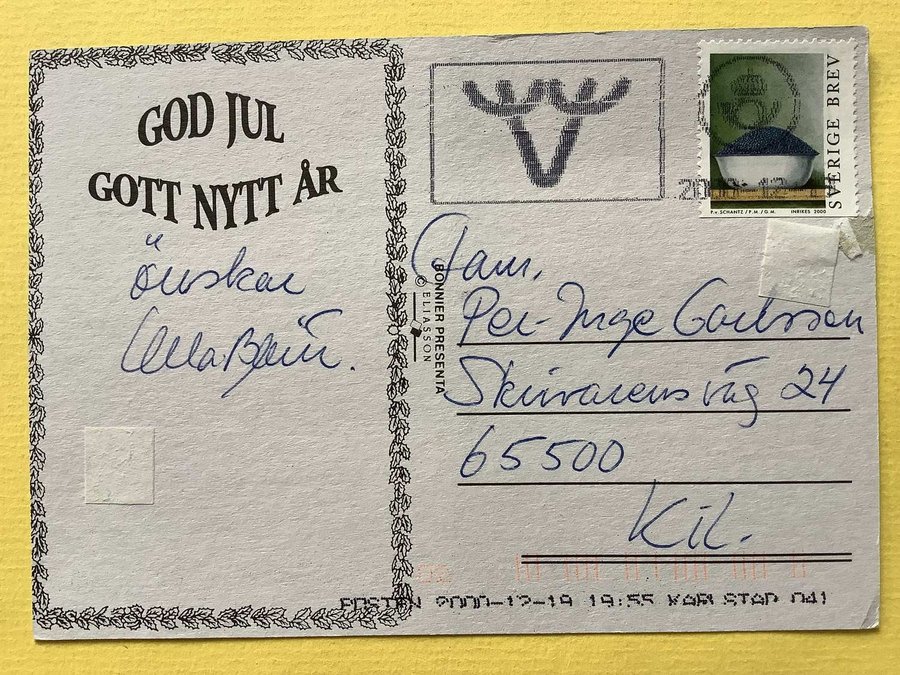 GOD JUL
GOTT NYTT ÅR
önskar
Fam.
Per-Inge Carlsson
väg 24
65500
Kil.
BONNIER PRESENTA
© ELIASSON
SVERIGE BREV
P.v SCHANTZ / P.M. / G.M. INRIKES 2000
POSTEN 2000-12-19 19:55 KARLSTAD 041